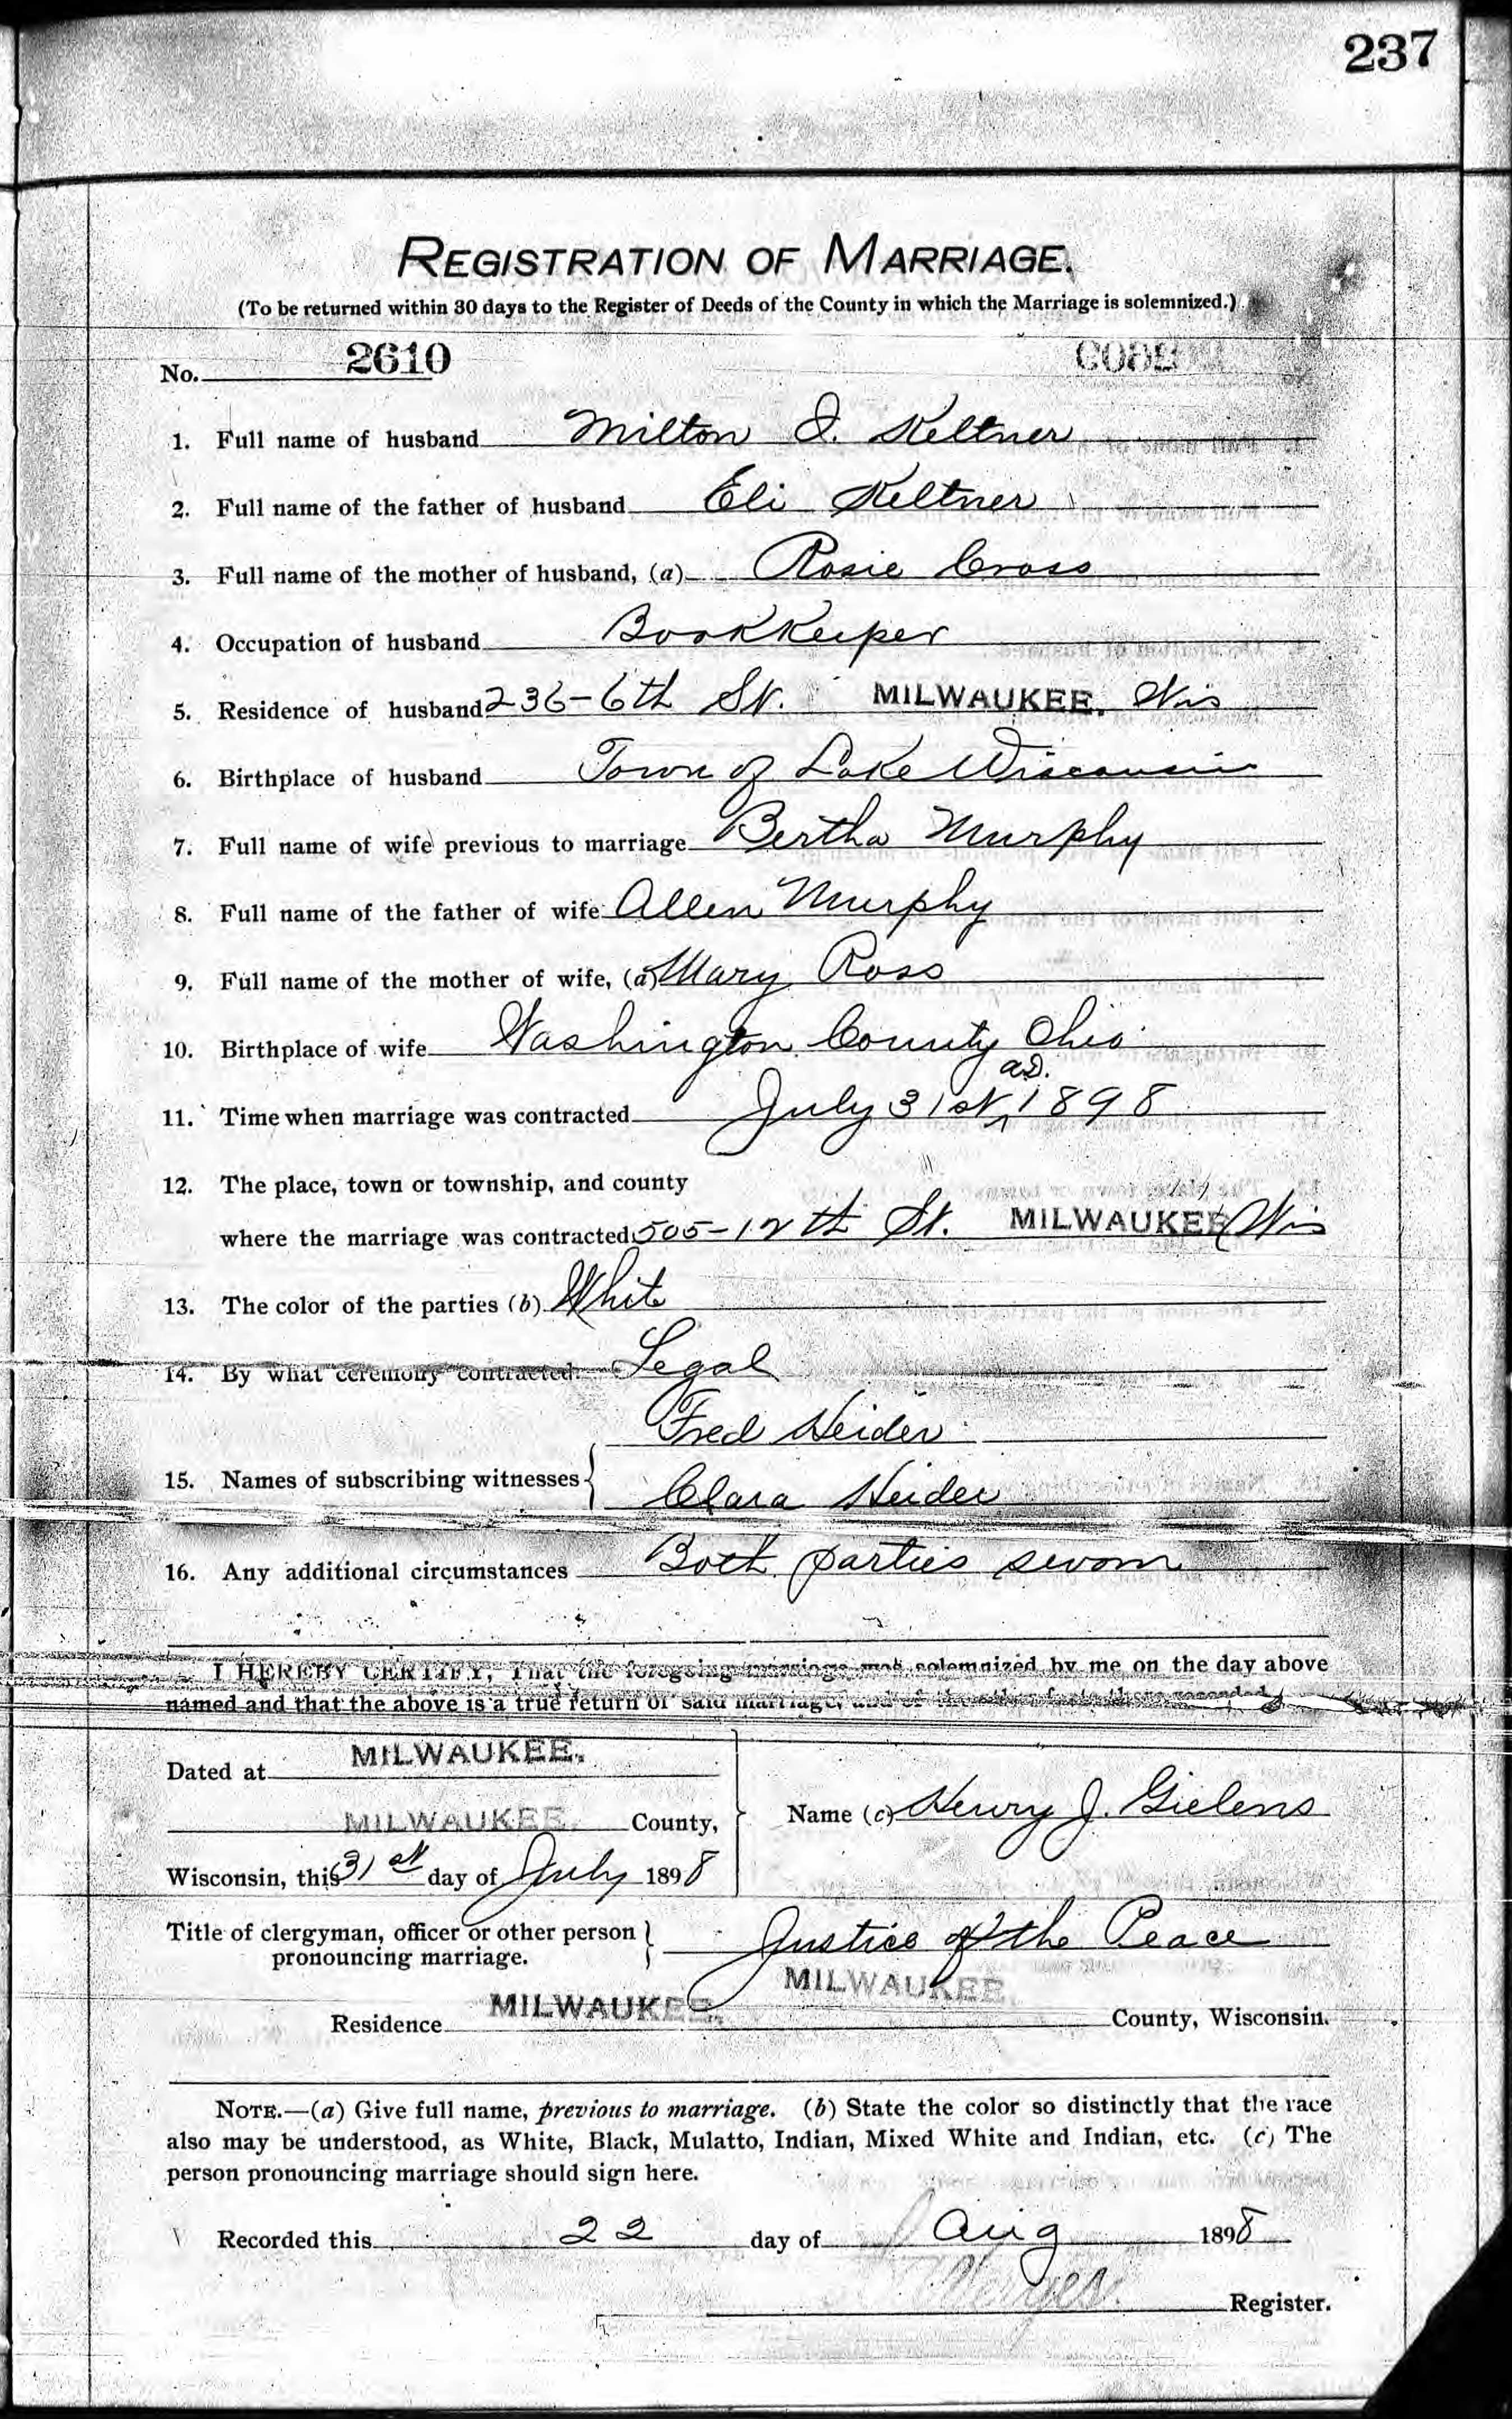 237
REGISTRATION OF MARRIAGE.
(To be returned within 30 days to the Register of Deeds of the County in which the Marriage is solemnized.)
No. 2610
1. Full name of husband Milton I. Keltner
2. Full name of the father of husband Eli Keltner
3. Full name of the mother of husband, (a) Rosie Cross
4. Occupation of husband Bookkeeper
5. Residence of husband 236-6th St. MILWAUKEE. Wis
6. Birthplace of husband Town of Lake Wisconsin
7. Full name of wife previous to marriage Bertha Murphy
8. Full name of the father of wife Allen Murphy
9. Full name of the mother of wife, (a) Mary Ross
10. Birthplace of wife Washington County Ohio
a.D.
11. Time when marriage was contracted July 31st 1898
12. The place, town or township, and county
where the marriage was contracted 505-12th St. MILWAUKEE Wis
13. The color of the parties (b) White
14. By what ceremony contracted Legal
Fred Heider
15. Names of subscribing witnesses
Clara Heider
16. Any additional circumstances Both parties sworn
I HEREBY CERTIFY, That the foregoing marriage was solemnized by me on the day above
named and that the above is a true return of said marriage, and of the other facts there recorded.
Dated at MILWAUKEE.
MILWAUKEE. County,
Name (c) Henry J. Gielens
Wisconsin, this 31st day of July 1898
Title of clergyman, officer or other person
pronouncing marriage.
Justice of the Peace
Residence MILWAUKEE. MILWAUKEE. County, Wisconsin.
NOTE.—(a) Give full name, previous to marriage. (b) State the color so distinctly that the race
also may be understood, as White, Black, Mulatto, Indian, Mixed White and Indian, etc. (c) The
person pronouncing marriage should sign here.
Recorded this 22 day of Aug 1898
Register.